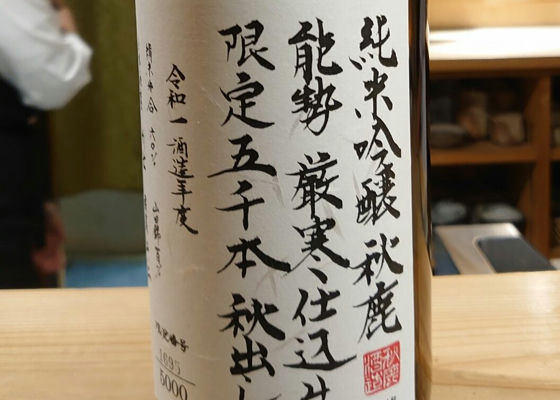 純米吟醸 秋鹿
能勢 厳寒仕込
限定五千本 秋出し
令和一酒造年度
精米歩合 六〇%
山田錦
限定番号
1695
5000
秋鹿
酒造